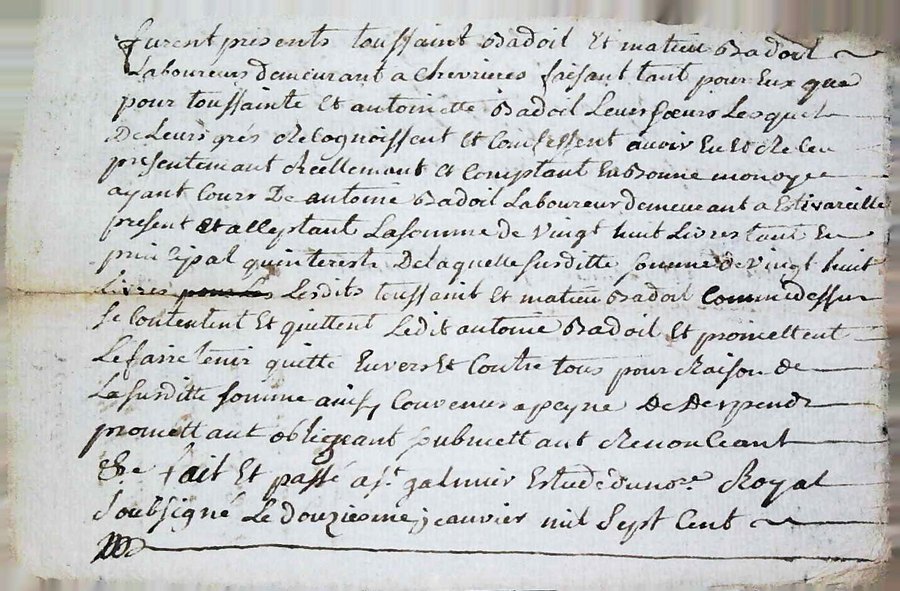 furent presents toussaint Badoil Et matieu Badoil
Laboureurs demeurant a Chevrieres faisant tant pour Eux que
pour toussainte Et antoinette Badoil Leurs soeurs Lesquels
De Leurs grés Recognoissent Et Confessent avoir Eu Et Receu
presentemant Reellemant Et Comptant En Bonne monoyee
ayant Cours De antoine Badoil Laboureur demeurant a Estivareille
present Et acceptant La somme de Vingt huit Livres tant En
principal quinterests De laquelle susditte somme de Vingt huit
Livres Lesdits toussaint Et matieu Badoil Comme dessus
se Contentent Et quittent Ledit antoine Badoil Et promettent
Le faire tenir quitte Envers Et Contre tous pour Raison de
La susditte somme ainsy Convenus a peyne De Despends
promettant obligeant soubmettant Renonceant
&ce fait Et passé a st. galmier Estude du nore. Royal
soubsigné Le douziesme jeanvier mil Sept Cent